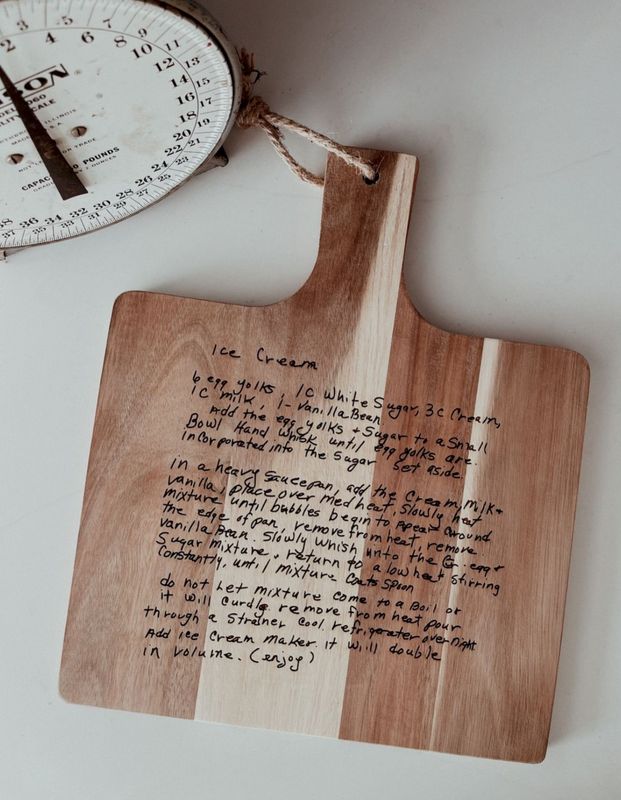 Ice Cream
6 egg yolks 1C White Sugar, 3C Cream,
1C milk, 1-Vanilla Bean
Add the egg yolks + Sugar to a Small
Bowl Hand whisk until egg yolks are.
incorporated into the Sugar set aside.
in a heavy Saucepan, add the Cream, milk +
vanilla, place over med heat, Slowly heat
mixture until bubbles begin to apear around
the edge of pan, remove from heat, remove
vanilla Bean. Slowly whish unto the egg +
Sugar mixture, return to a low heat Stirring
Constantly, until mixture Coats Spoon
do not Let mixture come to a Boil or
it will curdle remove from heat pour
through a Strainer Cool refrigerater overnight
Add ice Cream maker. it will double
in volume. (enjoy)
2 3 4 6 7 8 9 10 11 12 13 14 15 16 17 18 19 20 21 22 23 24 26 28 30 32 34 36 38
ILLINOIS
NOT LEGAL FOR USE IN TRADE
POUNDS
OUNCES